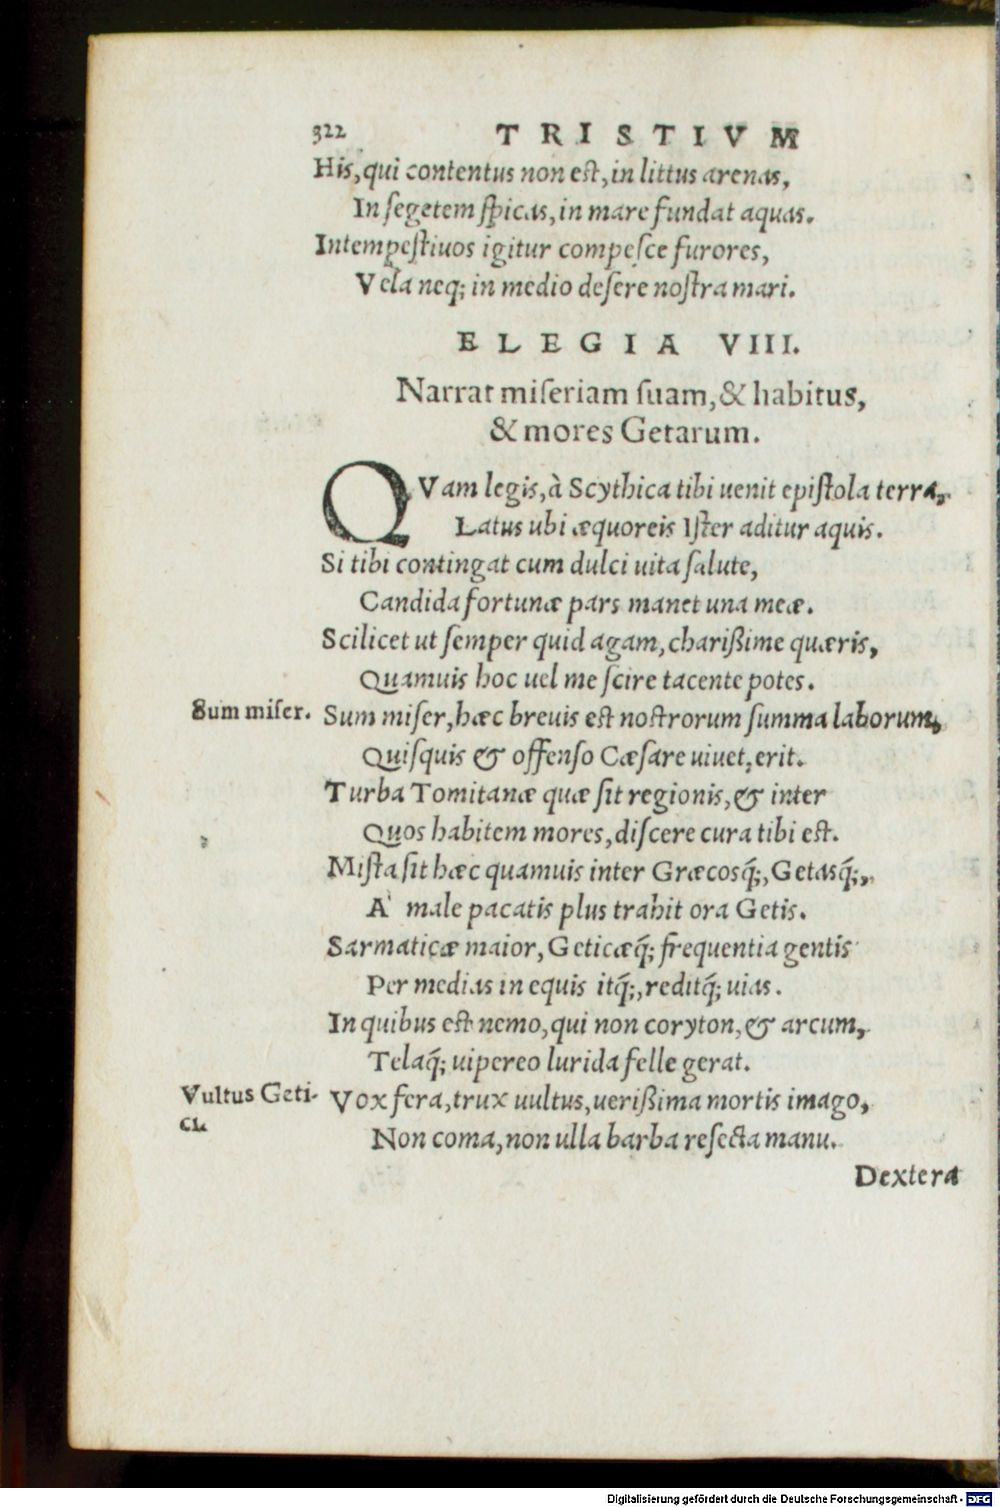 322 TRISTIVM
His, qui contentus non est, in littus arenas,
In ſegetem ſpicas, in mare fundat aquas.
Intempeſtiuos igitur compeſce furores,
Vela neq; in medio deſere noſtra mari.
ELEGIA VIII.
Narrat miſeriam ſuam, & habitus,
& mores Getarum.
QVam legis, à Scythica tibi uenit epiſtola terra,
Latus ubi æquoreis Iſter aditur aquis.
Si tibi contingat cum dulci uita ſalute,
Candida fortunæ pars manet una meæ.
Scilicet ut ſemper quid agam, chariſsime quæris,
Quamuis hoc uel me ſcire tacente potes.
Sum miſer.
Sum miſer, hæc breuis est nostrorum ſumma laborum,
Quiſquis & offenſo Cæſare uiuet, erit.
Turba Tomitanæ quæ ſit regionis, & inter
Quos habitem mores, diſcere cura tibi est.
Miſta ſit hæc quamuis inter Græcosq́;, Getasq́;,
A' male pacatis plus trahit ora Getis.
Sarmaticæ maior, Geticæq́; frequentia gentis
Per medias in equis itq́;, reditq́; uias.
In quibus est nemo, qui non coryton, & arcum,
Telaq́; uipereo lurida felle gerat.
Vultus Geti-
ci.
Vox fera, trux uultus, ueriſsima mortis imago,
Non coma, non ulla barba reſecta manu.
Dextera
Digitalisierung gefördert durch die Deutsche Forschungsgemeinschaft - DFG